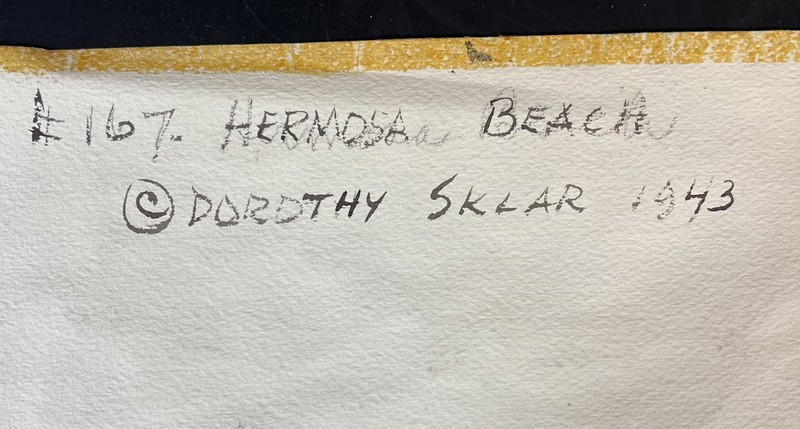 # 167. HERMOSA BEACH
© DOROTHY SKLAR 1943